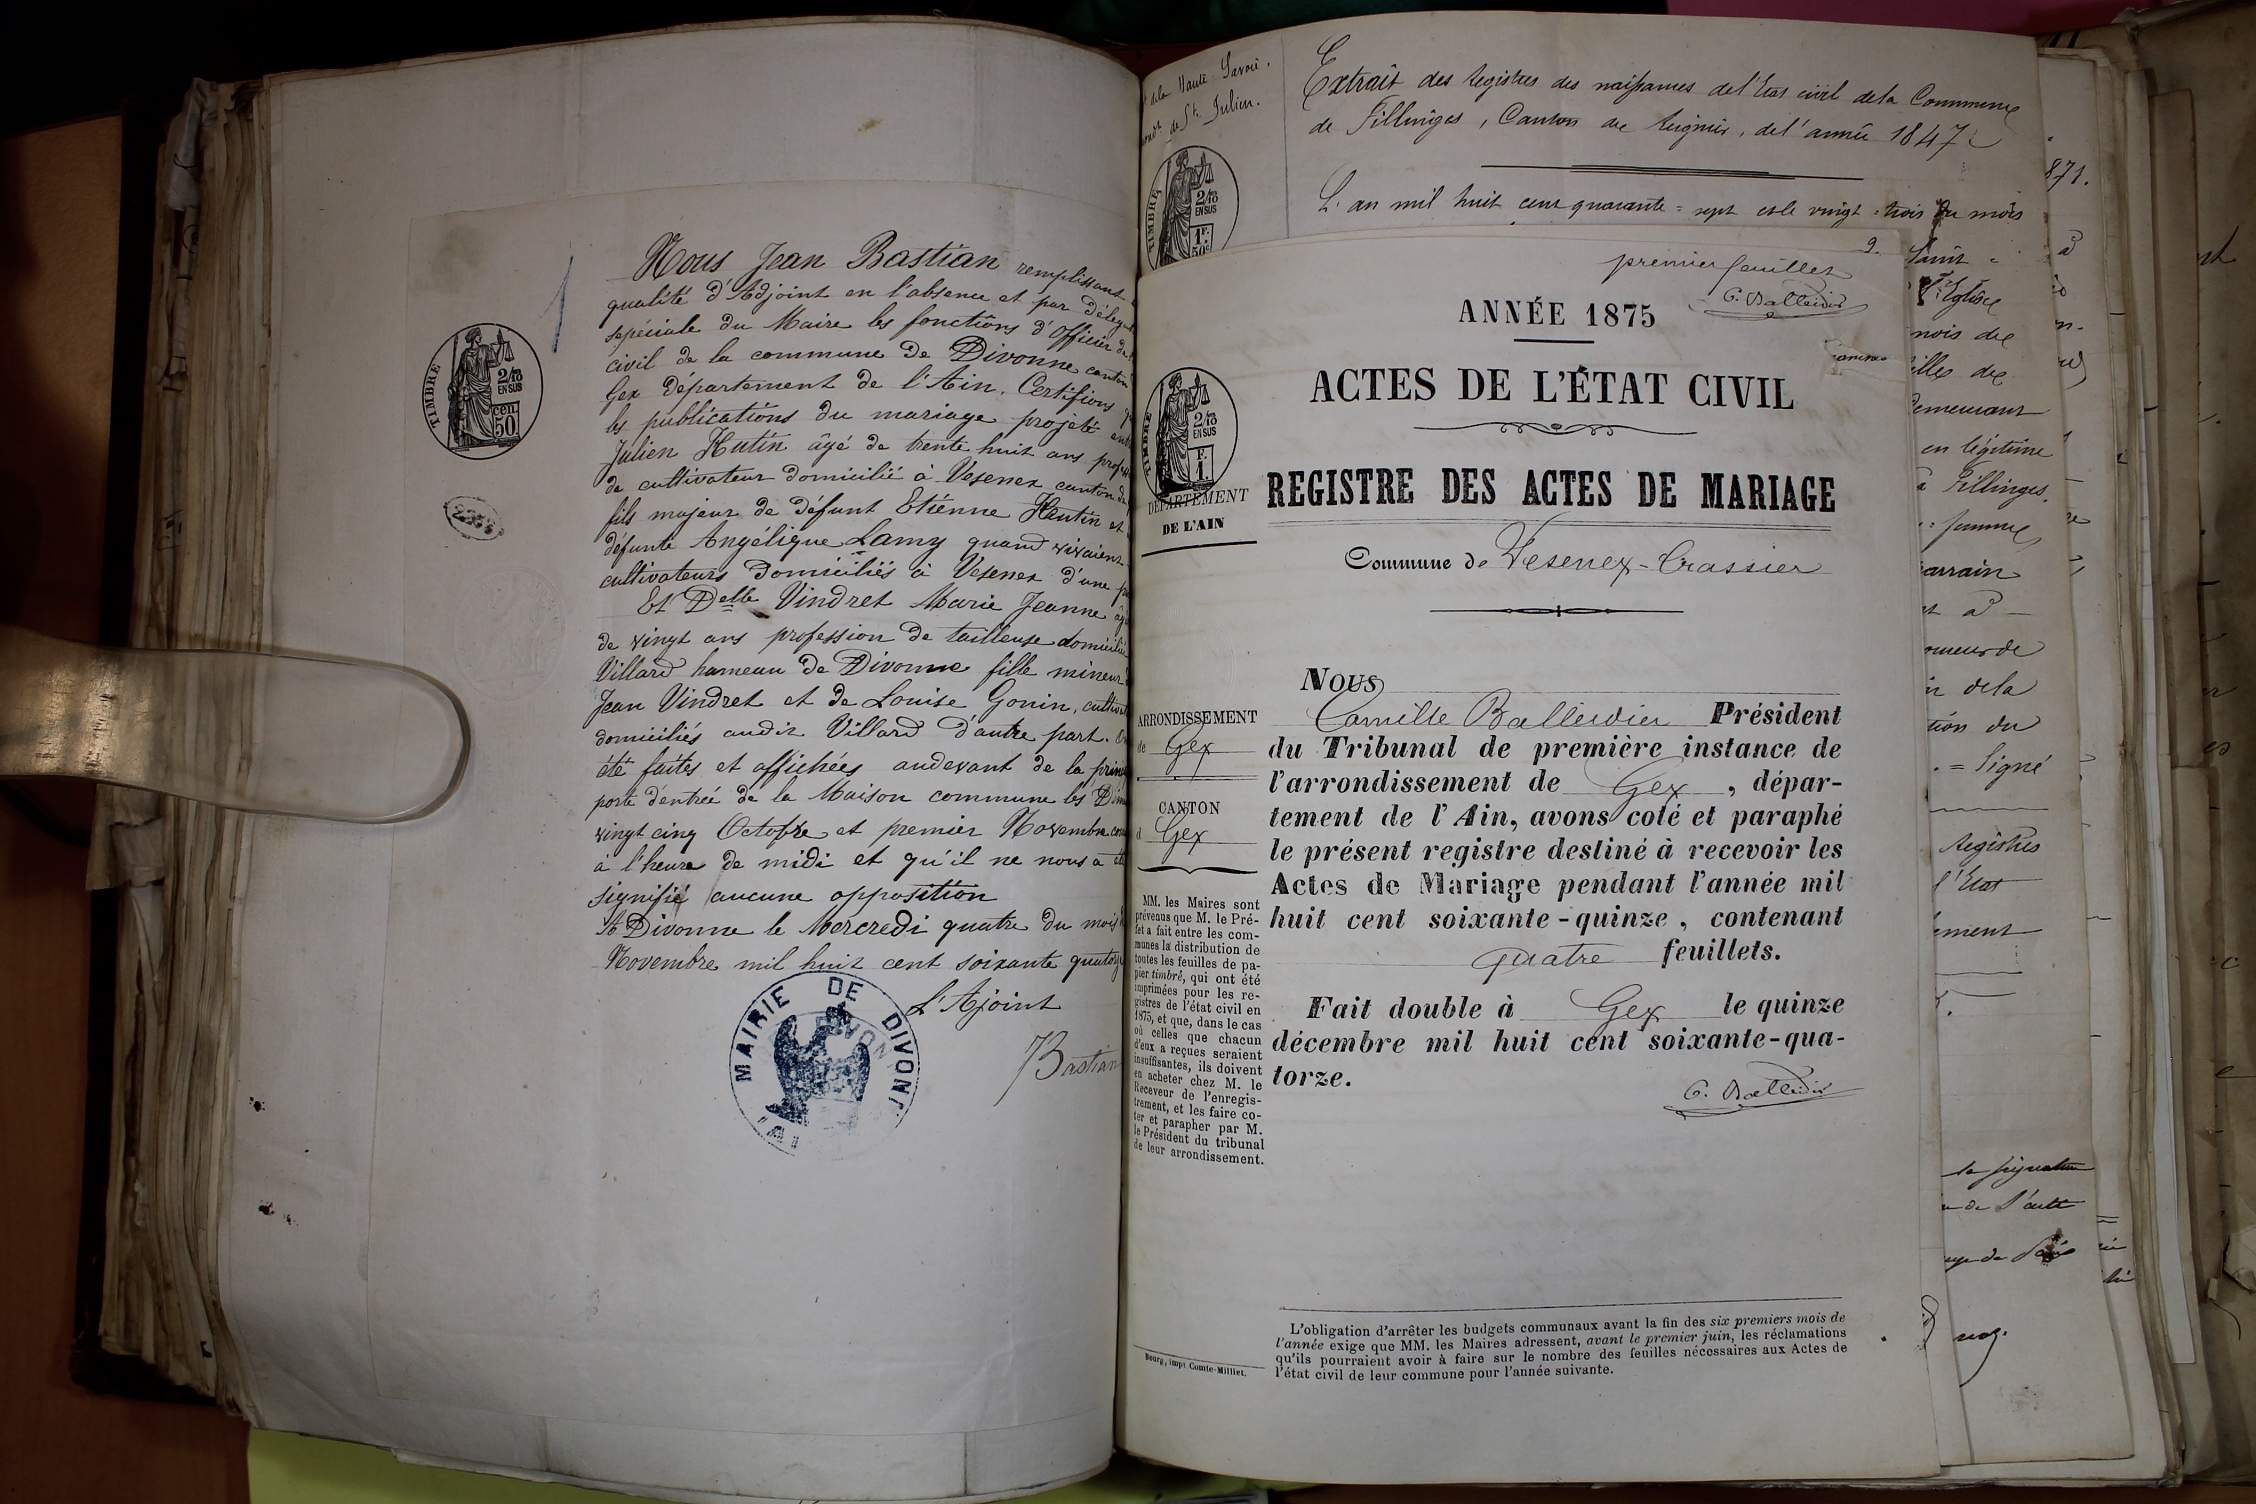 TIMBRE
2/10
EN SUS
cen.
50
Nous Jean Bastian remplissant
qualité d'Adjoint en l'absence et par délég
spéciale du Maire les fonctions d'Officier de
civil de la commune de Divonne canton
Gex Département de l'Ain. Certifions
les publications du mariage projeté ent
Julien Hutin âgé de trente huit ans profes
de cultivateur domicilié à Vesenex canton de
fils majeur de défunt Etiénne Hutin et
défunte Angélique Lamy quand vivaient
cultivateurs domiciliés à Vesenex d'une p
Et Delle Vindret Marie Jeanne âg
de vingt ans profession de tailleuse domicilié
Villard hameau de Divonne fille mineur
Jean Vindret et de Louise Gonin, cultiva
domiciliés audit Villard d'autre part. O
été faites et affichées audevant de la prin
porte d'entrée de la Maison commune les Dim
vingt cinq Octobre et premier Novembre cou
à l'heure de midi et qu'il ne nous a ét
signifié aucune opposition
A Divonne le Mercredi quatre du mois
Novembre mil huit cent soixante quatorz
L'Ajoint
Bastian
MAIRIE DE DIVONNE
(AIN)
de la Haute Savoie.
de St. Julien.
TIMBRE
2/10
EN SUS
1F.
50c
Extrait des Registres des naissances de l'Etat civil de la Commune
de Fillinges, Canton de Reignier, de l'année 1847
L'an mil huit cent quarante=sept et le vingt=trois du mois
Saint =
Eglise
mois de
fille de
demeurant
en légitime
à Fillinges.
femme
parrain
et à
de la
tion du
. = Signé
Registres
l'Etat
la signature
de l'autre
871.
premier feuillet
9.
C. Balleidier
ANNÉE 1875
ACTES DE L'ÉTAT CIVIL
REGISTRE DES ACTES DE MARIAGE
Commune de Vesenex-Crassier
TIMBRE
2/10
EN SUS
F.
1
DÉPARTEMENT
DE L'AIN
ARRONDISSEMENT
de Gex
CANTON
d Gex
MM. les Maires sont
prévenus que M. le Pré-
fet a fait entre les com-
munes la distribution de
toutes les feuilles de pa-
pier timbré, qui ont été
imprimées pour les re-
gistres de l'état civil en
1875, et que, dans le cas
où celles que chacun
d'eux a reçues seraient
insuffisantes, ils doivent
en acheter chez M. le
Receveur de l'enregis-
trement, et les faire co-
ter et parapher par M.
le Président du tribunal
de leur arrondissement.
Bourg, impr. Comte-Milliet.
Nous
Camille Balleidier Président
du Tribunal de première instance de
l'arrondissement de Gex, dépar-
tement de l'Ain, avons coté et paraphé
le présent registre destiné à recevoir les
Actes de Mariage pendant l'année mil
huit cent soixante-quinze, contenant
quatre feuillets.
Fait double à Gex le quinze
décembre mil huit cent soixante-qua-
torze.
C. Balleidier
L'obligation d'arrêter les budgets communaux avant la fin des six premiers mois de
l'année exige que MM. les Maires adressent, avant le premier juin, les réclamations
qu'ils pourraient avoir à faire sur le nombre des feuilles nécessaires aux Actes de
l'état civil de leur commune pour l'année suivante.